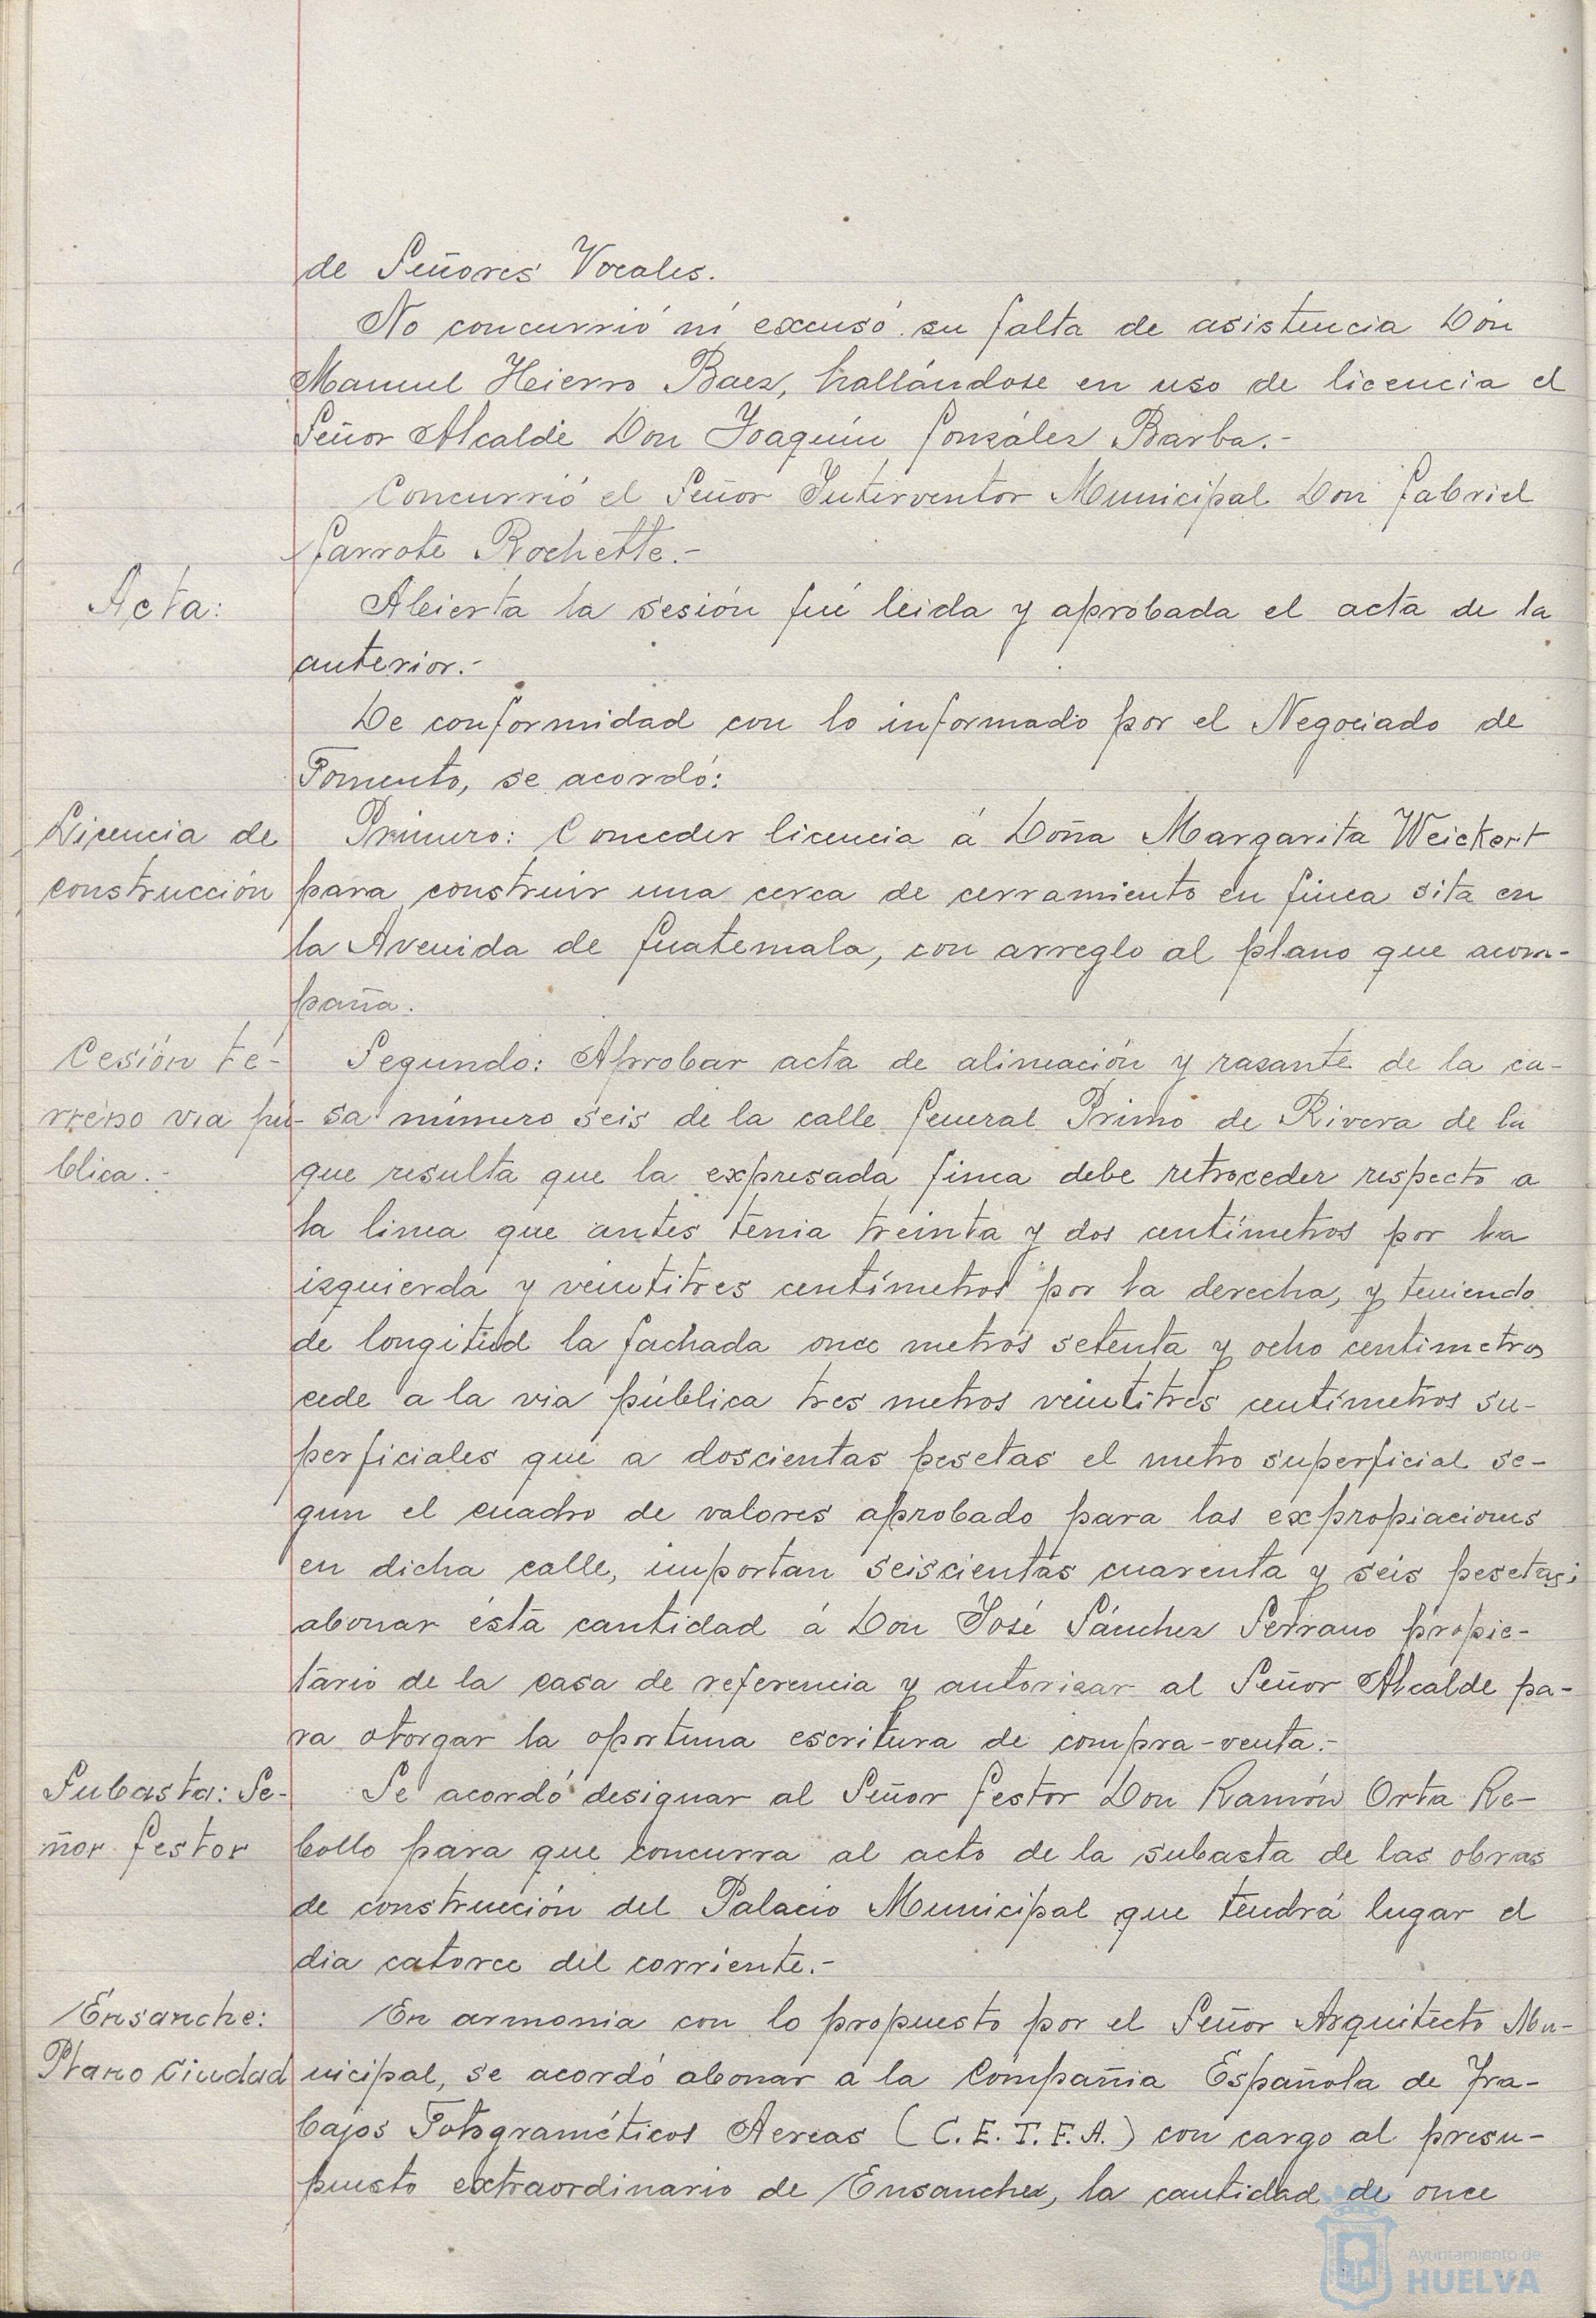 de Señores Vocales.
No concurrió ni excusó su falta de asistencia Don
Manuel Hierro Baez, hallándose en uso de licencia el
Señor Alcalde Don Joaquín González Barba.-
Concurrió el Señor Interventor Municipal Don Gabriel
Garrote Rochette.-
Acta:
Abierta la sesión fué leida y aprobada el acta de la
anterior.-
De conformidad con lo informado por el Negociado de
Fomento, se acordó:
Licencia de
construcción
Primero: Conceder licencia á Doña Margarita Weickert
para construir una cerca de cerramiento en finca sita en
la Avenida de Guatemala, con arreglo al plano que acom-
paña.
Cesión te-
rreno via pú-
blica.-
Segundo: Aprobar acta de alineación y rasante de la ca-
sa número seis de la calle General Primo de Rivera de la
que resulta que la expresada finca debe retroceder respecto a
la linea que antes tenia treinta y dos centímetros por la
izquierda y veintitres centímetros por la derecha, y teniendo
de longitud la fachada once metros setenta y ocho centimetros
cede a la via pública tres metros veintitres centímetros su-
perficiales que a doscientas pesetas el metro superficial se-
gun el cuadro de valores aprobado para las expropiaciones
en dicha calle, importan seiscientas cuarenta y seis pesetas;
abonar ésta cantidad á Don José Sánchez Serrano propie-
tario de la casa de referencia y autorizar al Señor Alcalde pa-
ra otorgar la oportuna escritura de compra-venta.-
Subasta: Se-
ñor Gestor
Se acordó designar al Señor Gestor Don Ramón Orta Re-
bollo para que concurra al acto de la subasta de las obras
de construcción del Palacio Municipal que tendrá lugar el
dia catorce del corriente.-
Ensanche:
Plano Ciudad
En armonia con lo propuesto por el Señor Arquitecto Mu-
nicipal, se acordó abonar a la Compañia Española de Tra-
bajos Fotograméticos Aereas (C.E.T.F.A.) con cargo al presu-
puesto extraordinario de Ensanche, la cantidad de once
Ayuntamiento de
HUELVA